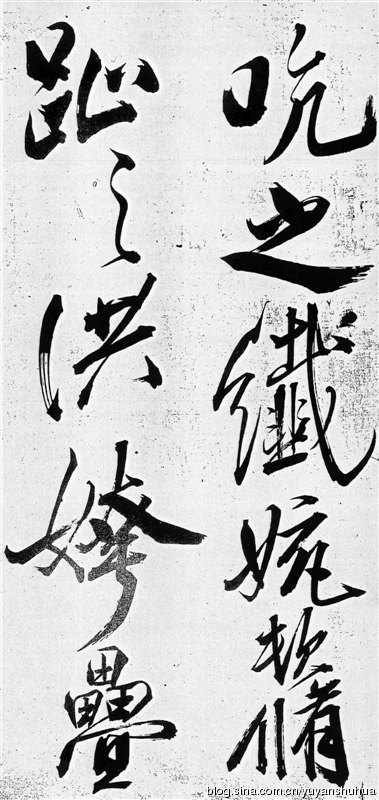 吭之纖婉頓脩
趾之洪姱疊
blog.sina.com.cn/yuyanshuhua